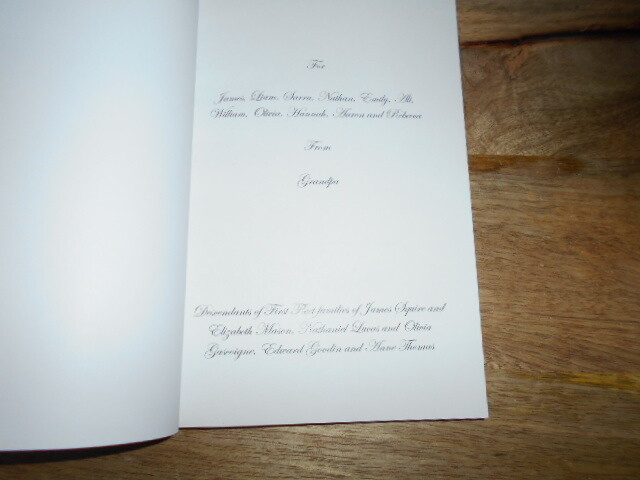 For
James, Liam, Sarra, Nathan, Emily, Ali,
William, Olivia, Hannah, Aaron and Rebecca
From
Grandpa
Descendants of First Fleet families of James Squire and
Elizabeth Mason, Nathaniel Lucas and Olivia
Gascoigne, Edward Goodin and Anne Thomas